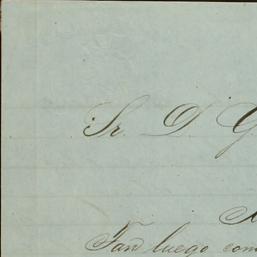 Sr. D. G
Tan luego com